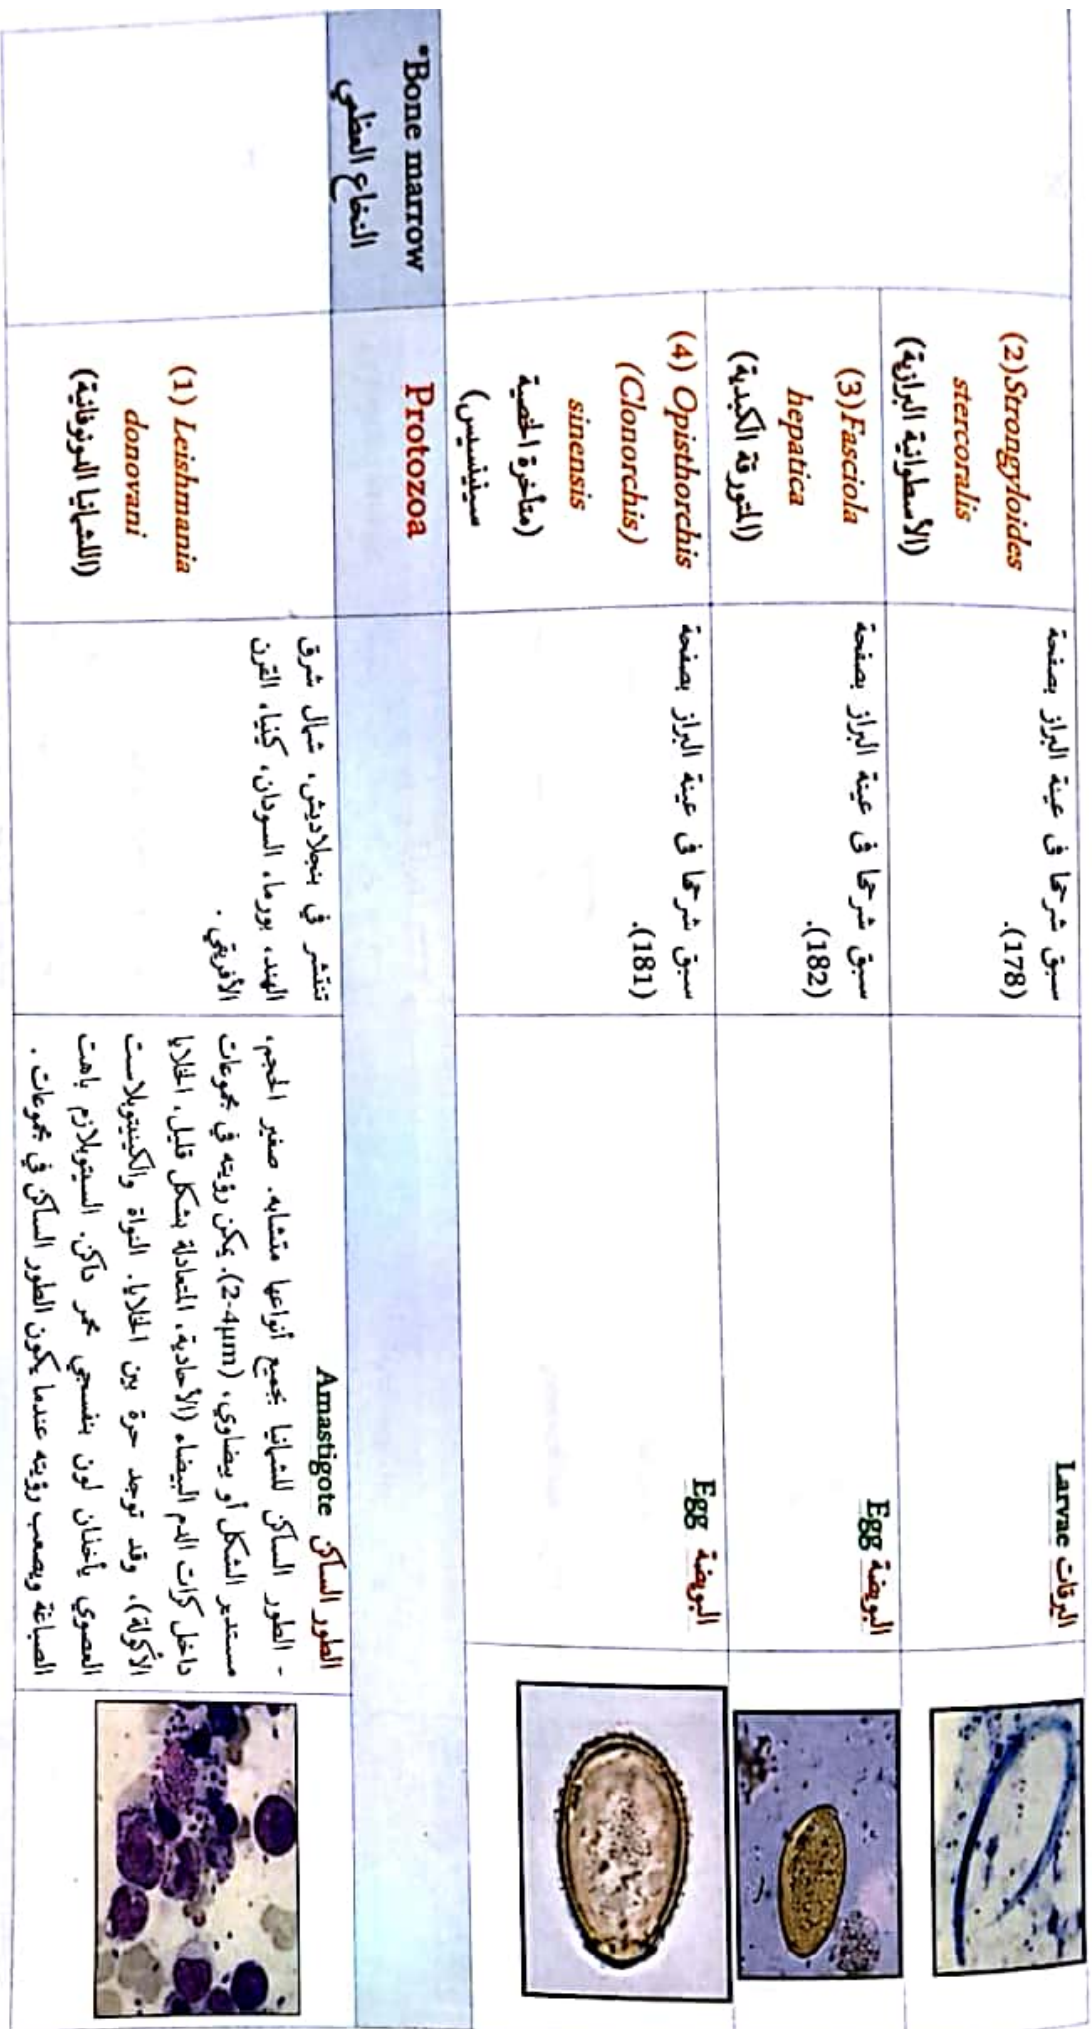 (2)Strongyloides
stercoralis
(الأسطوانية البرازية)
سبق شرحها فى عينة البراز بصفحة
(178).
اليرقات Larvae
(3)Fasciola
hepatica
(المتورقة الكبدية)
سبق شرحها فى عينة البراز بصفحة
(182).
البويضة Egg
(4) Opisthorchis
(Clonorchis)
sinensis
(متأخرة الخصية
سينينسيس)
سبق شرحها فى عينة البراز بصفحة
(181).
البويضة Egg
*Bone marrow
النخاع العظمي
Protozoa
(1) Leishmania
donovani
(اللشمانيا الدونوفانية)
تنتشر في بنجلاديش، شمال شرق
الهند، بورما، السودان، كينيا، القرن
الأفريقي .
الطور الساكن Amastigote
- الطور الساكن للشمانيا بجميع أنواعها متشابه. صغير الحجم،
مستدير الشكل أو بيضاوي، (2-4µm). يمكن رؤيته في مجموعات
داخل كرات الدم البيضاء (الأحادية، المتعادلة بشكل قليل، الخلايا
الأكولة)، وقد توجد حرة بين الخلايا. النواة والكينيتوبلاست
العصوي يأخذان لون بنفسجي محمر داكن. السيتوبلازم باهت
الصباغة ويصعب رؤيته عندما يكون الطور الساكن في مجموعات .